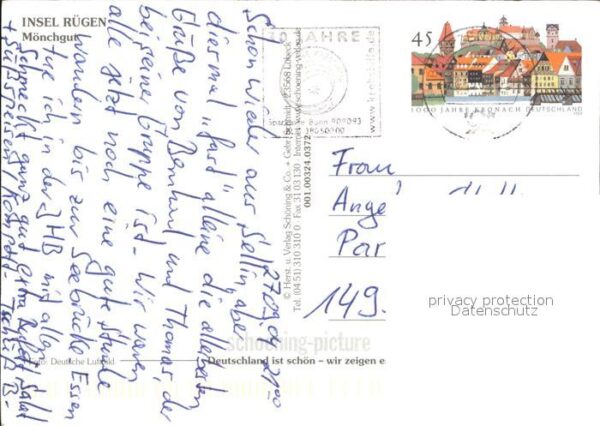 INSEL RÜGEN
Mönchgut
27.09.04 21.00
Schon wieder aus Sellin, aber
diesmal "fast" alleine die allerbesten
Grüße von Bernhard und Thomas, der
bei seiner Gruppe ist. Wir waren
alle jetzt noch eine gute Stunde
wandern bis zur Seebrücke Essen
tue ich in der JHB mit allen
schmeckt ganz gut
Tschüß B-
Foto: Deutsche Luftbild
© Herst. u. Verlag Schöning & Co. + Gebr. Schmidt, 23568 Lübeck
Tel. (04 51) 310 310 0 · Fax 31 03 130 · Internet: www.schoening-verlag.de
001.00324.0372
30 JAHRE
Sparkasse Bonn 909093
BLZ 38050000
www.krebshilfe.de
45
1000 JAHRE KRONACH DEUTSCHLAND
Frau
Ange
Par
149.
privacy protection
Datenschutz
schoening-picture
Deutschland ist schön – wir zeigen e